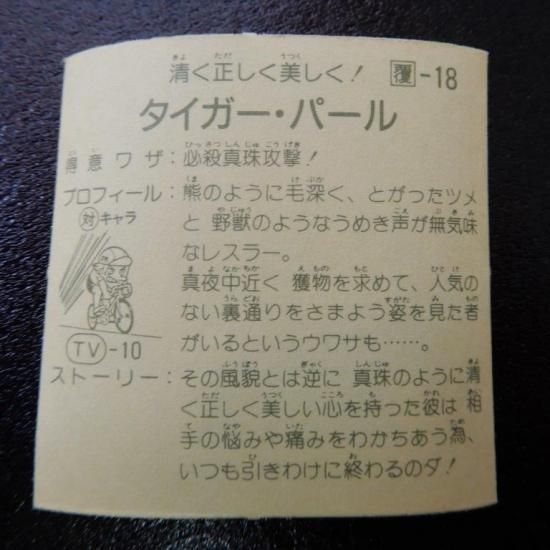 清く正しく美しく! 覆-18
タイガー・パール
得意ワザ:必殺真珠攻撃!
プロフィール:熊のように毛深く、とがったツメ
対キャラ
と野獣のようなうめき声が無気味
なレスラー。
真夜中近く獲物を求めて、人気の
ない裏通りをさまよう姿を見た者
がいるというウワサも……。
TV-10
ストーリー:その風貌とは逆に真珠のように清
く正しく美しい心を持った彼は相
手の悩みや痛みをわかちあう為、
いつも引きわけに終わるのダ!